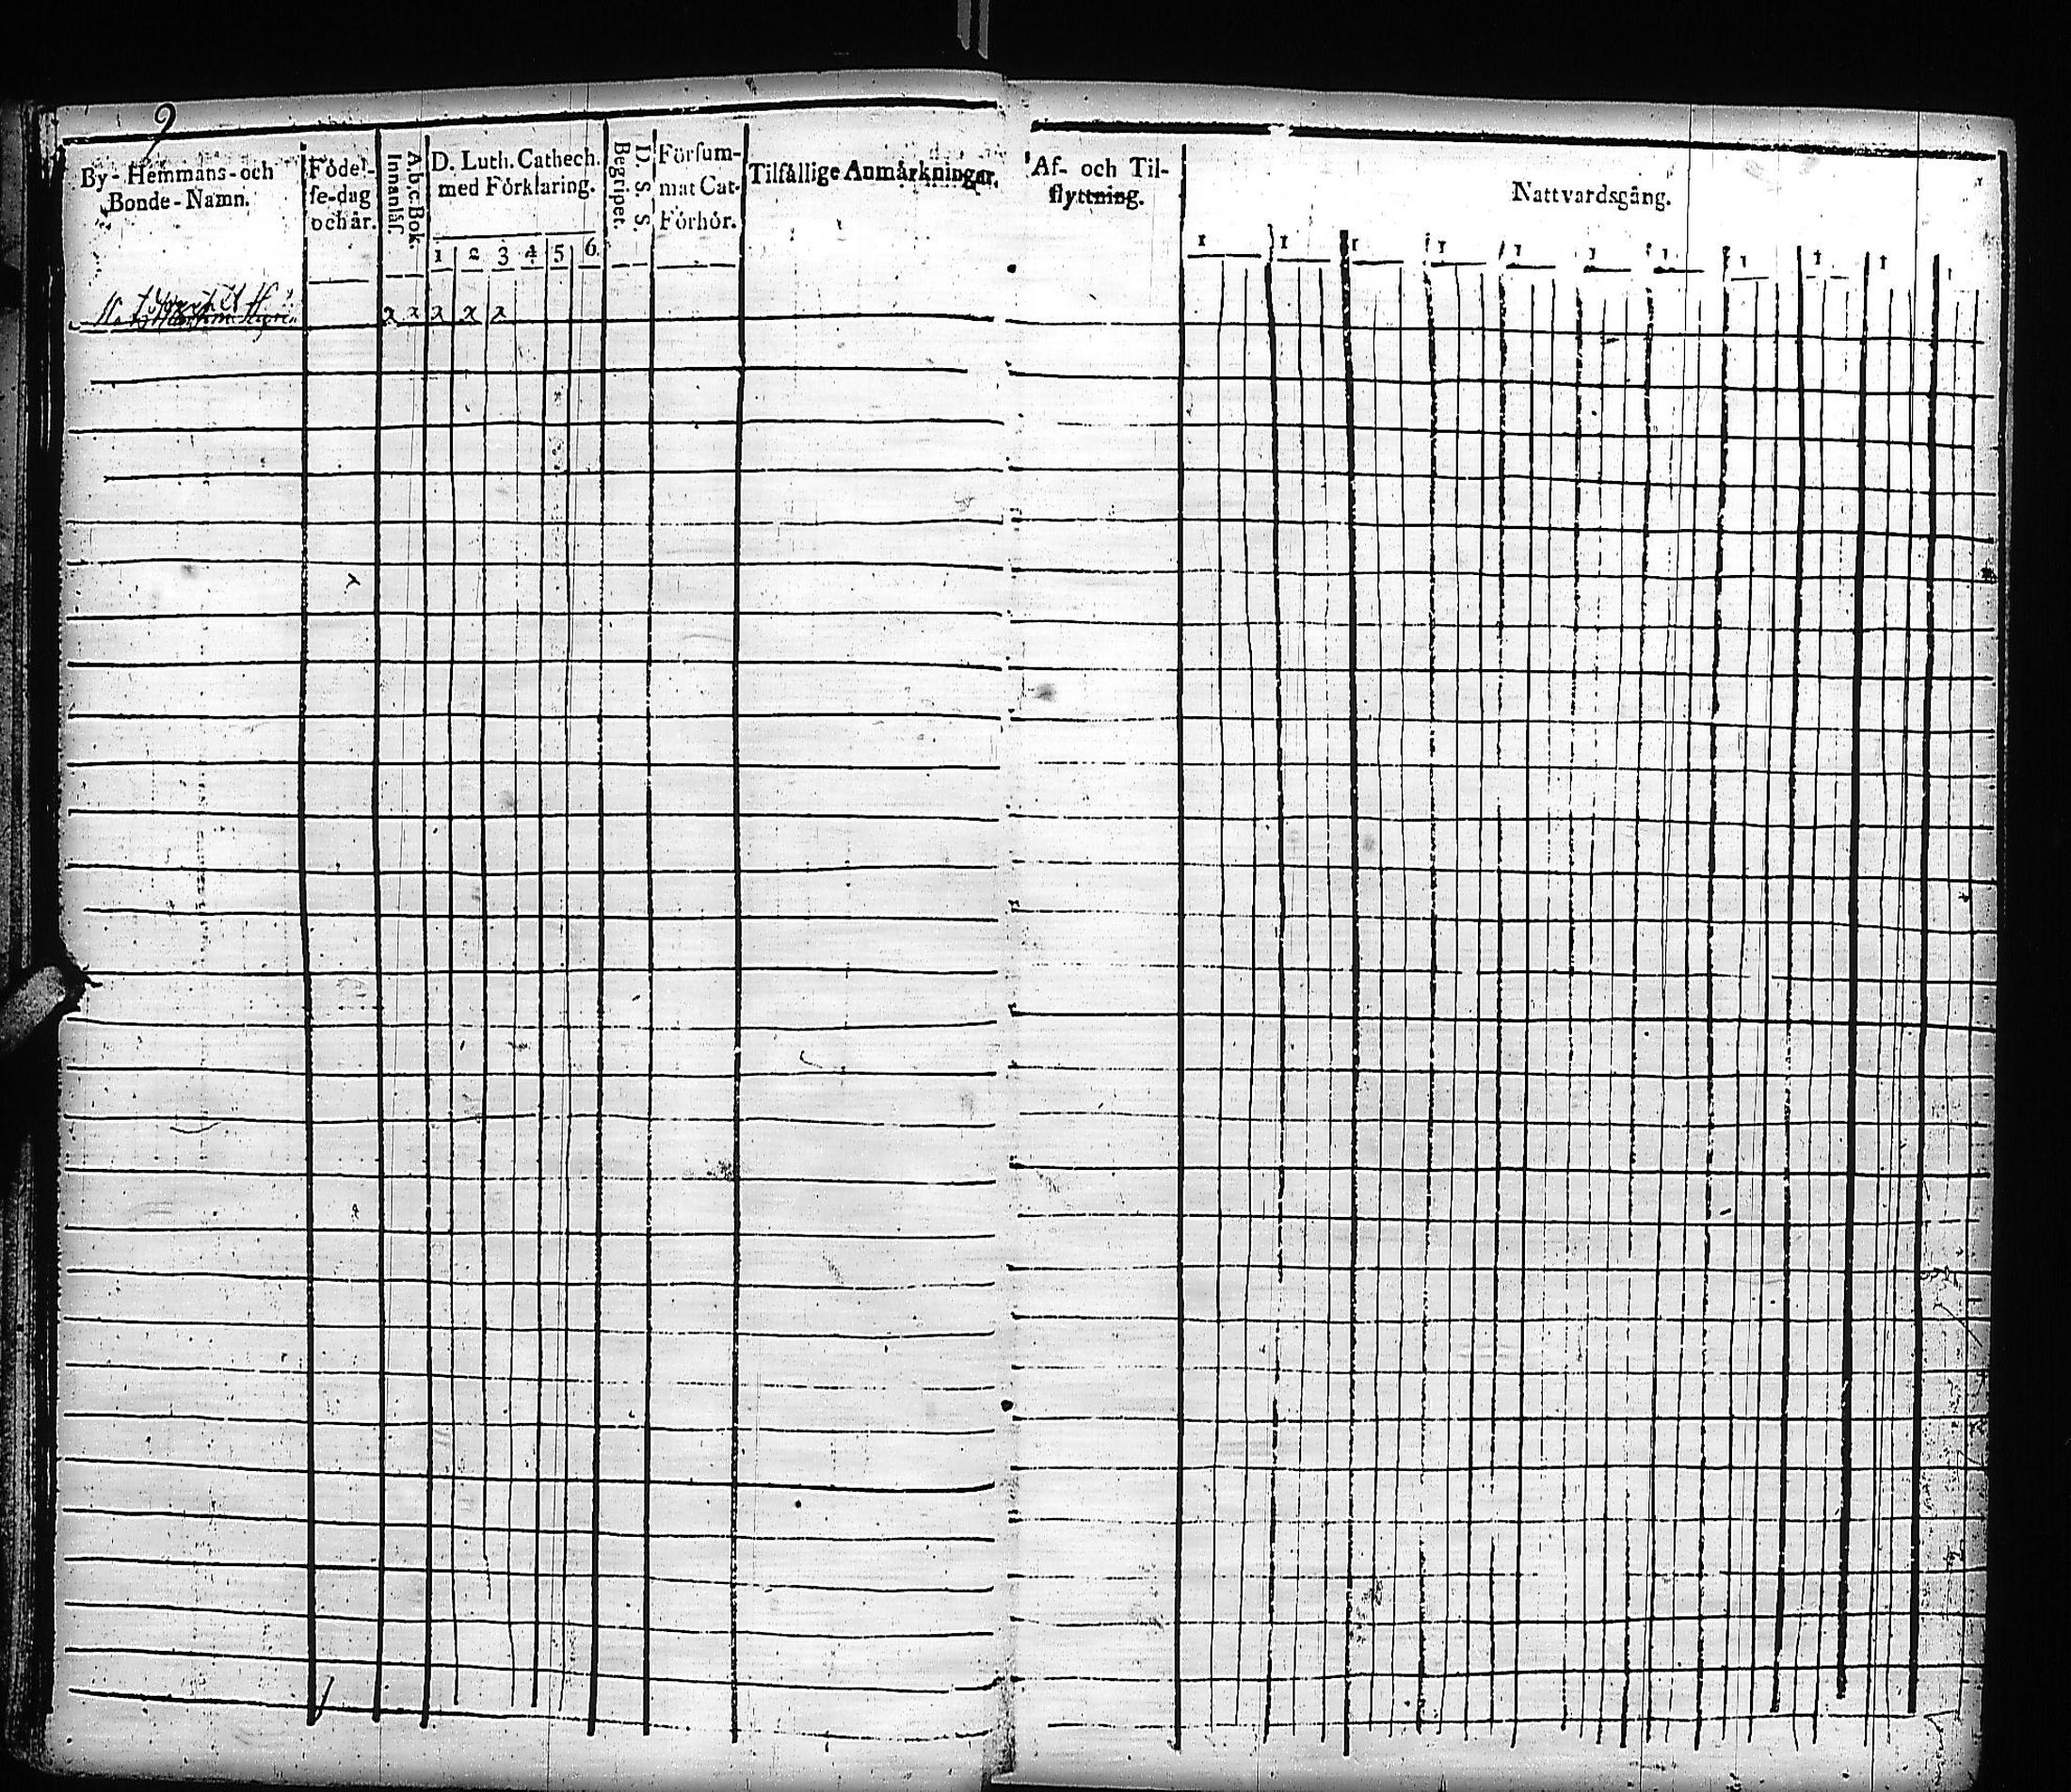 9
By- Hemmans- och
Bonde-Namn.
Födel-
se-dag
och år.
A.b.c. Bok.
Innanläs.
D. Luth. Cathech.
med Förklaring.
1 2 3 4 5 6
D. S. S.
Begripet.
Försum-
mat Cat.
Förhör.
Tilfällige Anmärkningar.
Af- och Til-
flyttning.
Nattvardsgång.
1 1 1 1 1 1 1 1 1 1 1
x x x x x